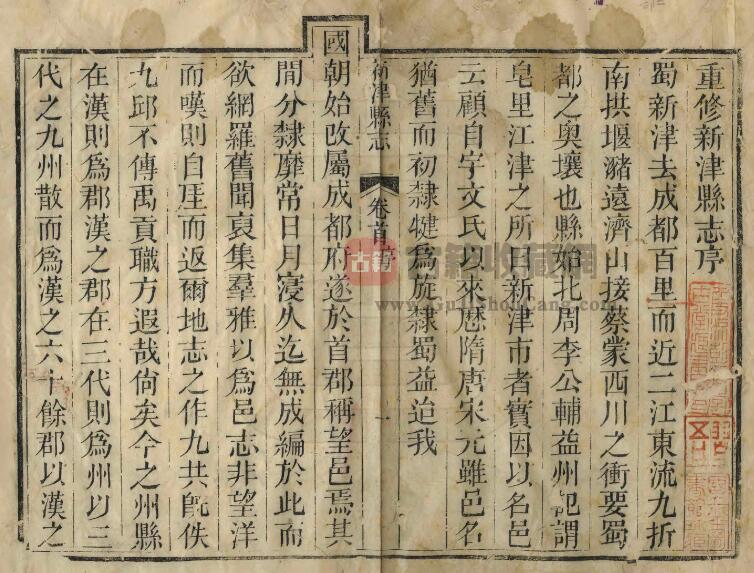 重修新津縣志序
蜀新津去成都百里而近二江東流九折
南拱堰瀦遠濟山接蔡蒙西川之衝要蜀
都之奧壤也縣始北周李公輔益州記謂
皂里江津之所曰新津市者實因以名邑
云顧自宇文氏以來歷隋唐宋元雖邑名
猶舊而初隸犍爲旋隸蜀益迨我
新津縣志
卷首序
一
國朝始改屬成都府遂於首郡稱望邑焉其
間分隸靡常日月寖久迄無成編於此而
欲網羅舊聞裒集羣雅以爲邑志非望洋
而嘆則自厓而返爾地志之作九共旣佚
九邱不傳禹貢職方遐哉尙矣今之州縣
在漢則爲郡漢之郡在三代則爲州以三
代之九州散而爲漢之六十餘郡以漢之
古籍
古籍收藏網
www.GuJiShouCang.com